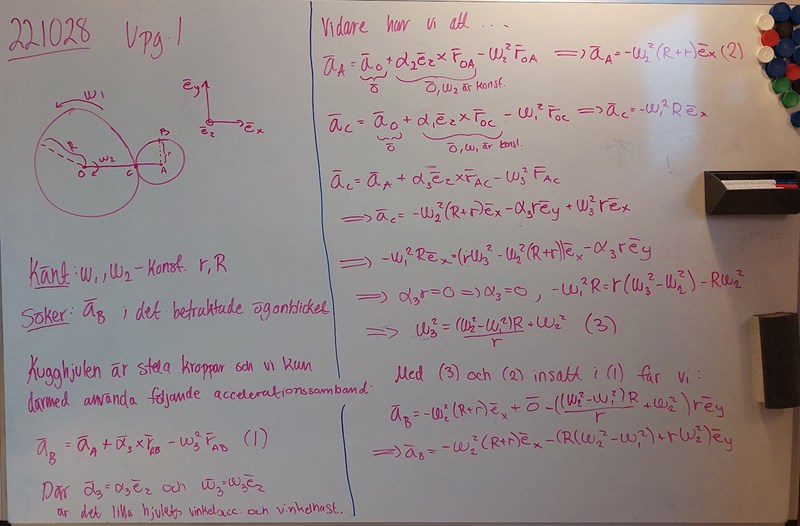 221028 Upg.1
ω₁
ē_y
ē_z
ē_x
R
O
ω₂
C
B
r
A
Känt: ω₁, ω₂ - konst. r, R
Söker: ā_B i det betraktade ögonblicket
Kugghjulen är stela kroppar och vi kan
därmed använda följande accelerationssamband:
ā_B = ā_A + ᾱ₃ × r̄_AB - ω₃² r̄_AB (1)
Där ᾱ₃ = α₃ē_z och ω̄₃ = ω₃ē_z
är det lilla hjulets vinkelacc. och vinkelhast.
Vidare har vi att ...
ā_A = ā_O + α₂ē_z × r̄_OA - ω₂² r̄_OA ⟹ ā_A = -ω₂²(R+r)ē_x (2)
0̄ 0̄, ω₂ är konst.
ā_C = ā_O + α₁ē_z × r̄_OC - ω₁² r̄_OC ⟹ ā_C = -ω₁²Rē_x
0̄ 0̄, ω₁ är konst.
ā_C = ā_A + α₃ē_z × r̄_AC - ω₃² r̄_AC
⟹ ā_C = -ω₂²(R+r)ē_x - α₃rē_y + ω₃²rē_x
⟹ -ω₁²Rē_x = (rω₃² - ω₂²(R+r))ē_x - α₃rē_y
⟹ α₃r = 0 ⟹ α₃ = 0, -ω₁²R = r(ω₃² - ω₂²) - Rω₂²
⟹ ω₃² = (ω₂² - ω₁²)R / r + ω₂² (3)
Med (3) och (2) insatt i (1) får vi:
ā_B = -ω₂²(R+r)ē_x + 0̄ - ((ω₂² - ω₁²)R / r + ω₂²) rē_y
⟹ ā_B = -ω₂²(R+r)ē_x - (R(ω₂² - ω₁²) + rω₂²)ē_y